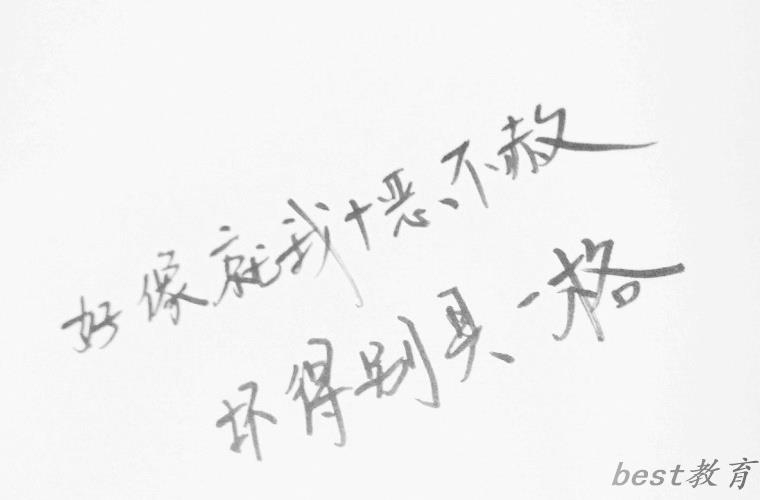 好像就我十恶不赦
坏得别具一格
best教育